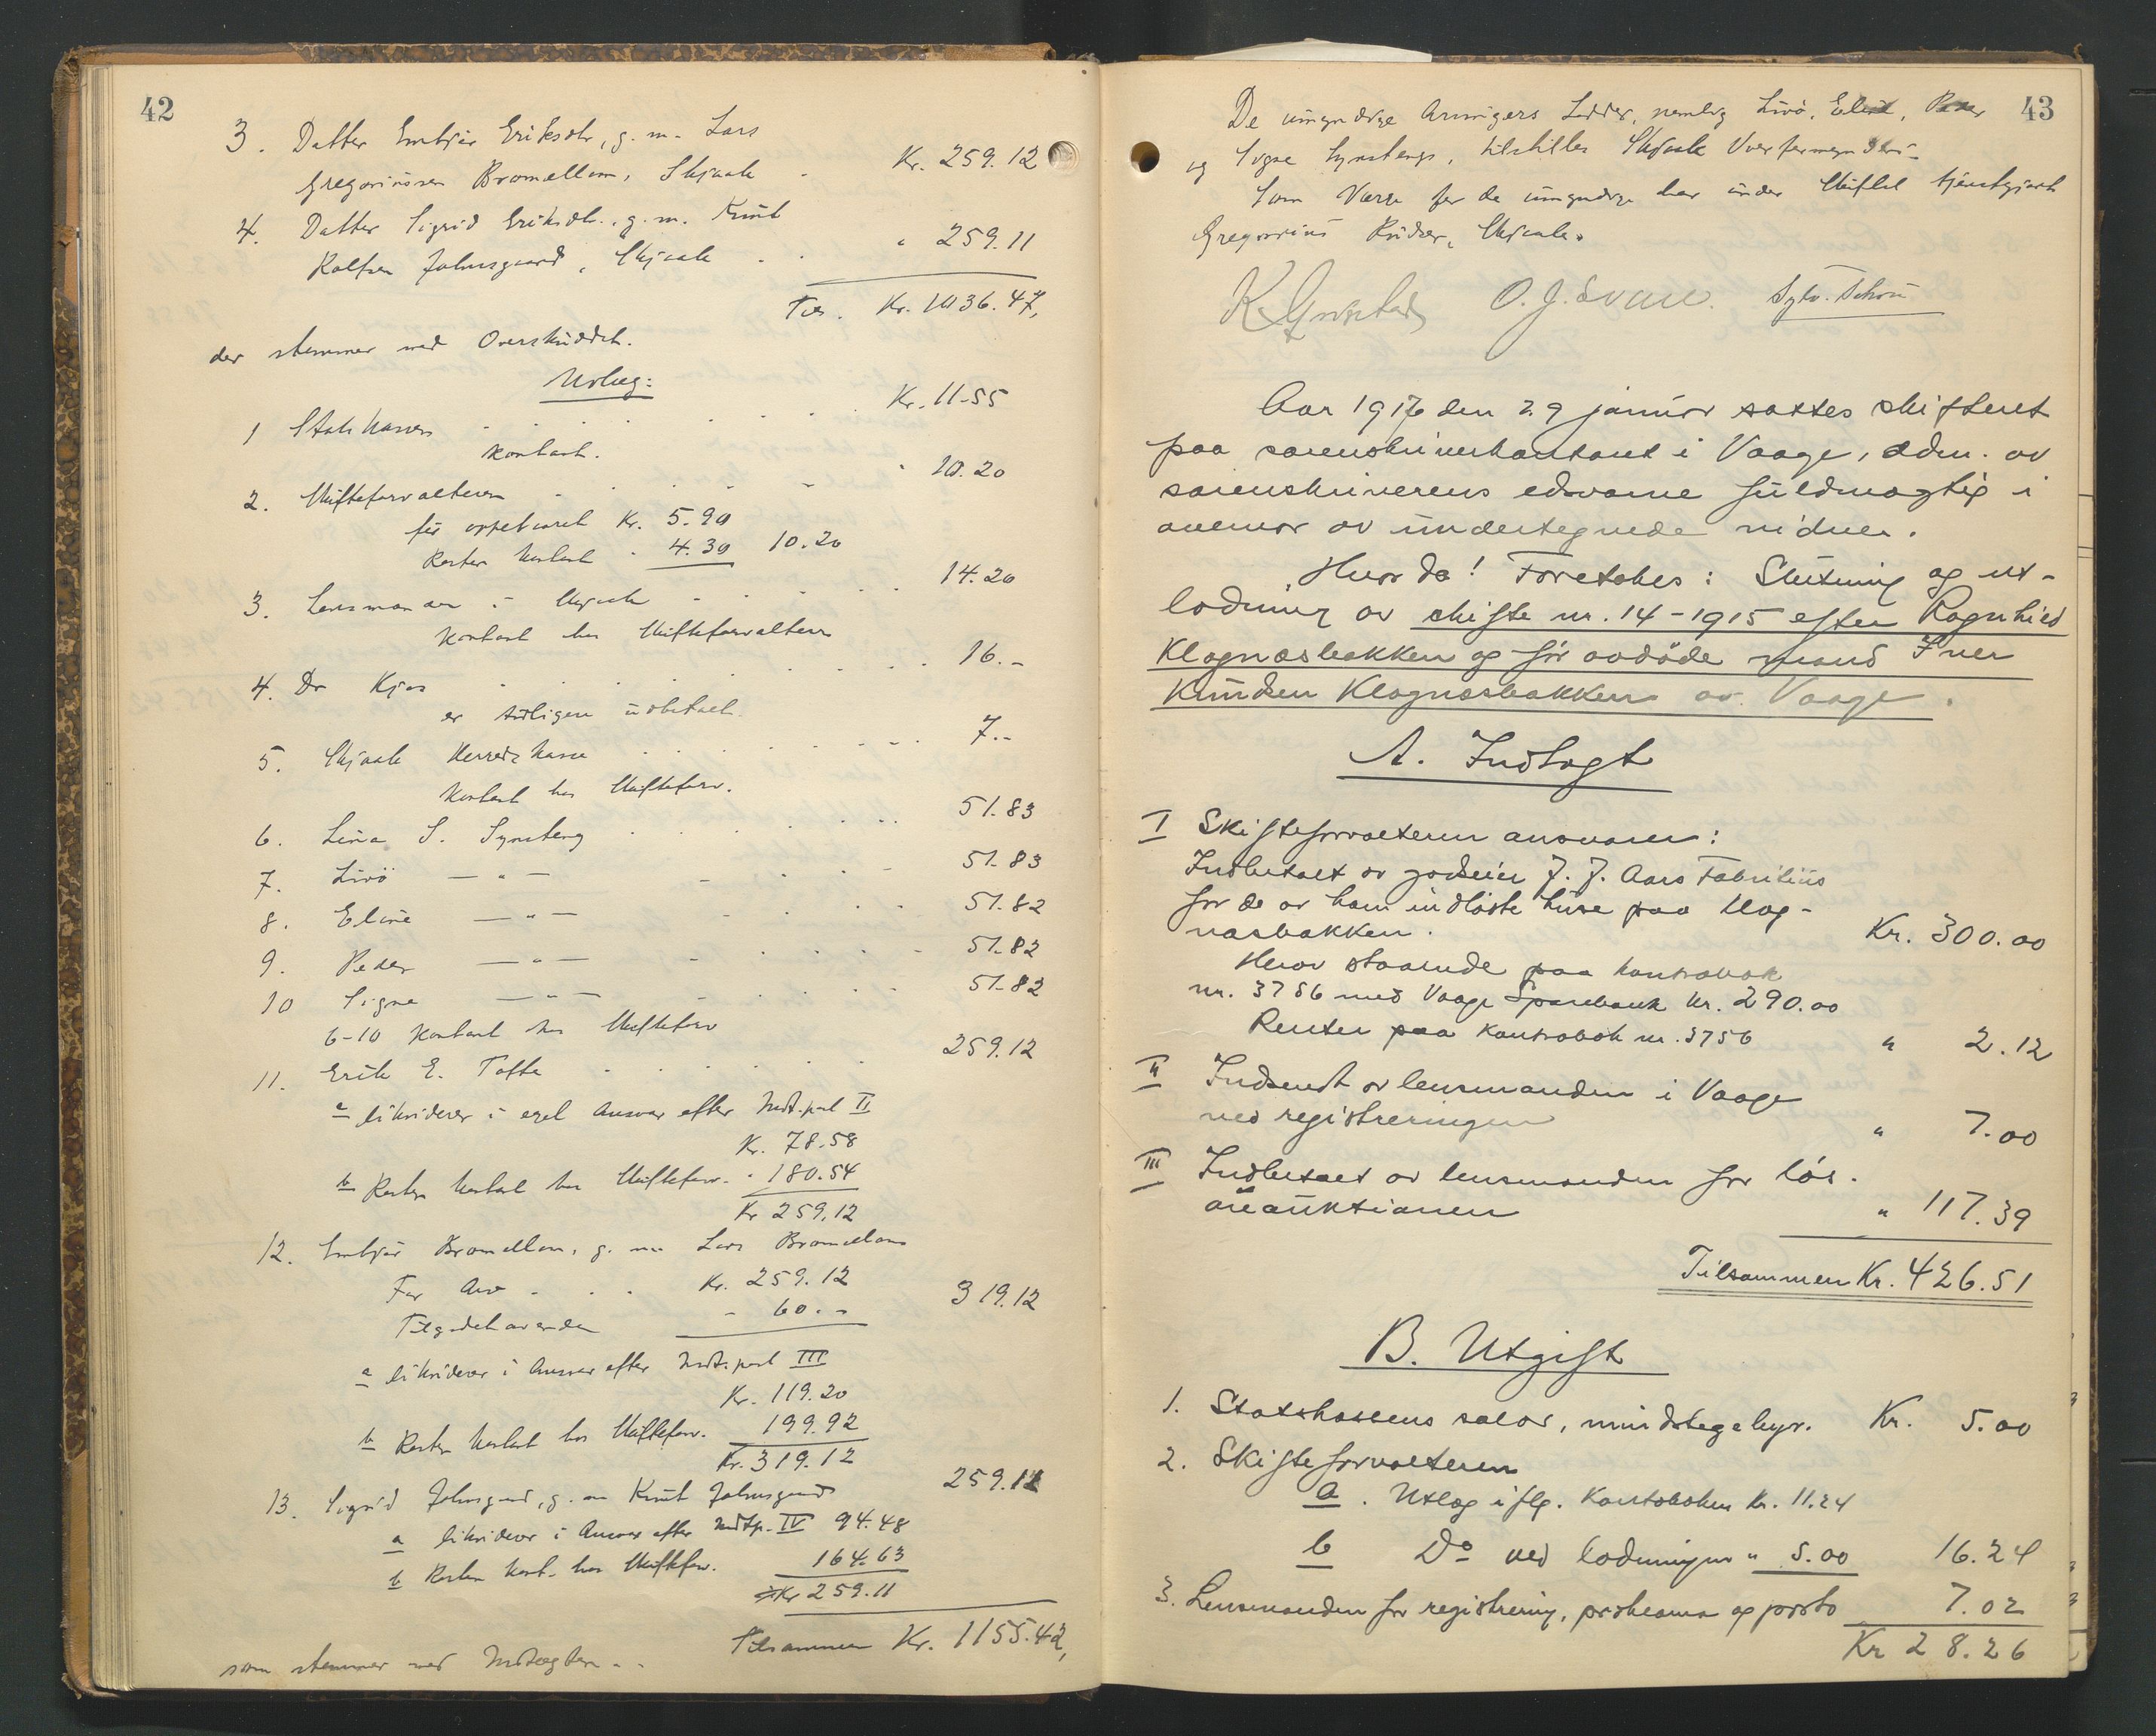 42
3. Datter Embjør Eriksdtr, g. m. Lars
Gregoriussen Bromellom, Skjaak . Kr. 259.12
4. Datter Sigrid Eriksdtr., g. m. Knut
Rolfsen Jahnsgaard, Skjaak . . " 259.11
Tils. Kr. 1036.47,
der stemmer med Overskuddet.
Utlæg:
1 Statskassen . . . . . Kr. 11-55
kontant.
2. Skifteforvalteren . . . . " 10.20
før oppebaaret Kr. 5.90
Resten kontant " 4.30 10.20
3. Lensmanden i Skjaak . . . . 14.20
Kontant hos Skifteforvalteren
4. Dr Kjos . . . . . . 16.-
er tidligere utbetalt
5. Skjaak Herredskasse . . . . . 7.-
Kontant hos Skifteforv.
6. Lina S. Synsteng . . . . . 51.83
7. Livö — " — . . . . 51.83
8. Eline — " — . . . . 51.82
9. Peder — " — . . . . 51.82
10 Signe — " — . . . . 51.82
6-10 Kontant hos Skifteforv
11. Erik E. Tofte . . . . . 259.12
a likviderer i eget Ansvar efter Indt.post II
Kr. 78.58
b Resten kontant hos Skifteforv. " 180.54
Kr 259.12
12. Embjør Bromellom, g. m. Lars Bromellom
For Arv . . . Kr. 259.12
Tilgodehavende - 60.- 319.12
a likviderer i Ansvar efter Indt.post III
Kr. 119.20
b Resten kontant hos Skifteforv. 199.92
Kr. 319.12
13. Sigrid Jahnsgard, g. m. Knut Jahnsgard 259.11
a likviderer i Ansvar efter Indtp. IV 94.48
b Resten kont. hos Skifteforv. 164.63
Kr 259.11
Tilsammen Kr. 1155.42,
som stemmer med Indtægten . .
43
De umyndige Arvingers Lodder, nemlig Livö, Eline, Peder
og Signe Synstengs, tilstilles Skjaak Overformynderi.
Som Værge for de umyndige har under Skiftet tjenstgjort
Gregorius , Skjaak.
O. J. Svare.
Aar 1916 den 29 januar sattes skifteret
paa sorenskriverkontoret i Vaage, adm. av
sorenskriverens edsvorne fuldmægtig i
overvær av undertegnede vidner.
Hvorda! Foretokes: Slutning og ut-
lodning av skifte nr. 14-1915 efter Ragnhild
Klognæsbakken og før avdöde mand Iver
Knudsen Klognæsbakken av Vaage.
A. Indtægt
I Skifteforvalteren ansvarer:
Indbetalt av godseier J. J. Aars Fabritius
for de av ham indlöste huse paa Klog-
næsbakken. Kr. 300.00
Herav staaende paa kontrabok
nr. 3756 med Vaage Sparebank Kr. 290.00
Renter paa Kontrabok nr. 3756 " 2.12
II Indsendt av lensmanden i Vaage
ved registreringen " 7.00
III Indbetalt av lensmanden for lös-
öreauktionen " 117.39
Tilsammen Kr. 426.51
B. Utgift
1. Statskassens salær, mindstegebyr. Kr. 5.00
2. Skifteforvalteren
a. Utlæg iflg. Kontoboken Kr. 11.24
b Do ved lodningen " 5.00 16.24
3. Lensmanden for registrering, proklama og porto 7.02
Kr 28.26